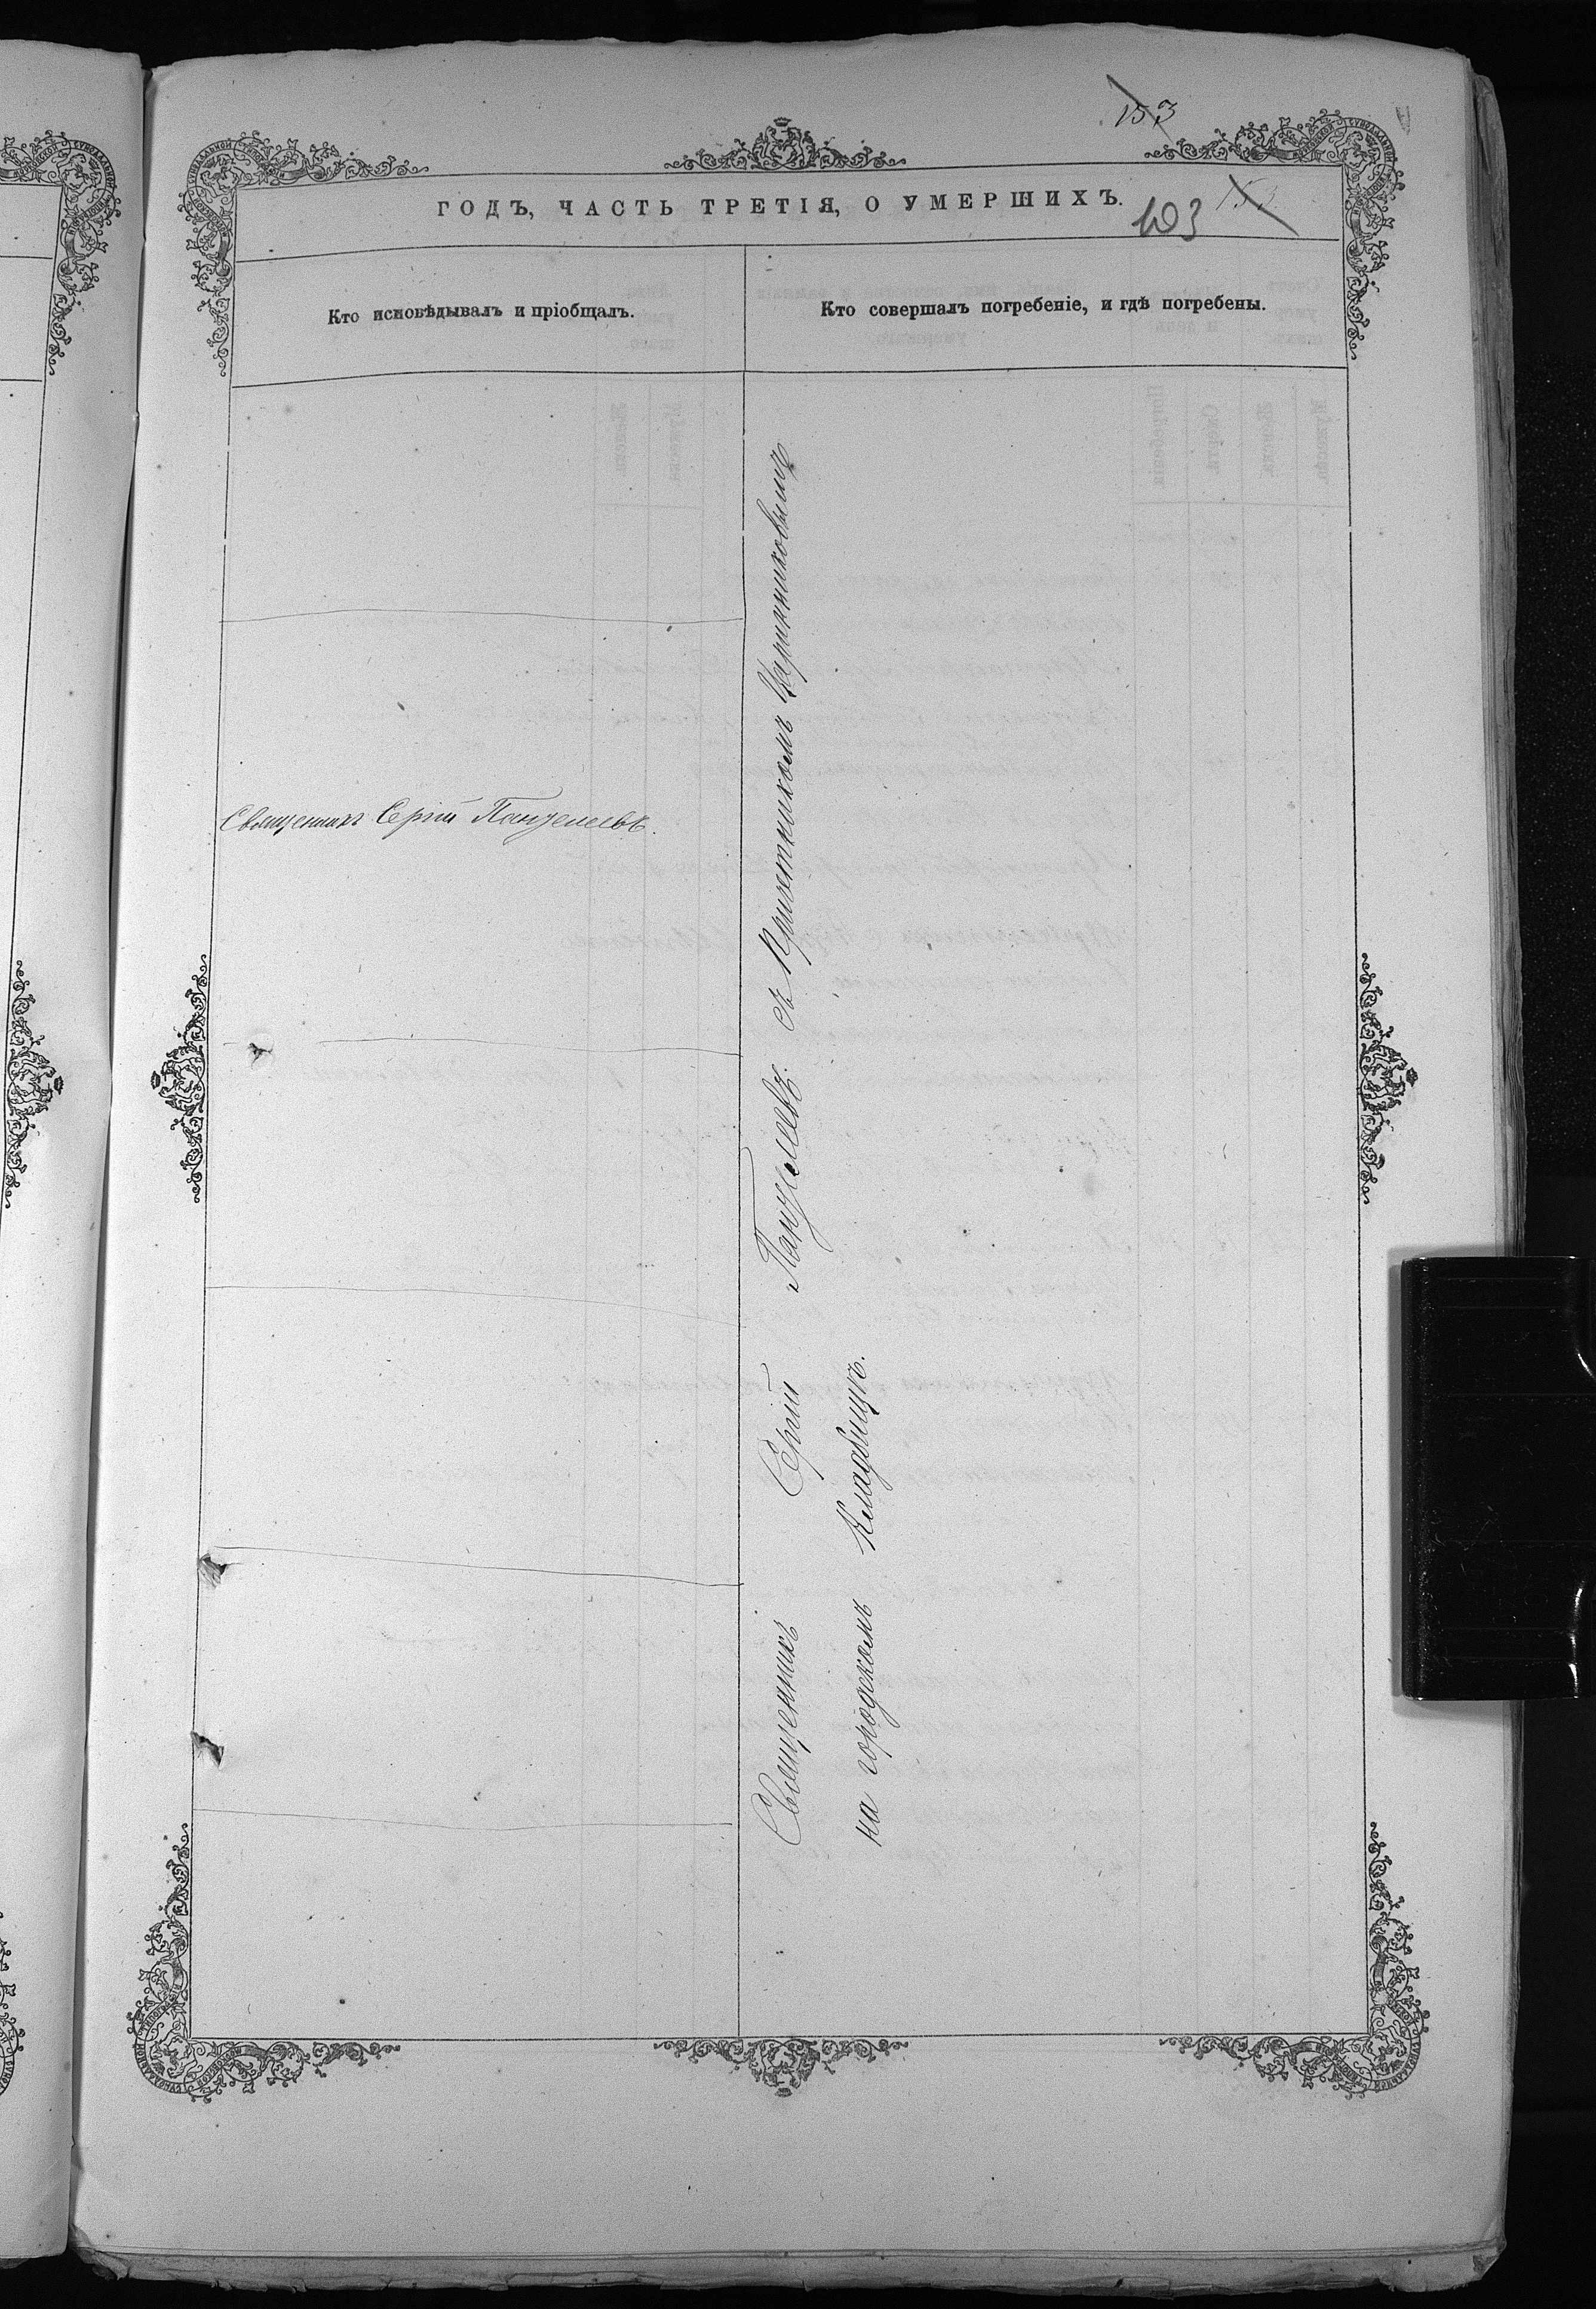 153
ГОДЪ, ЧАСТЬ ТРЕТІЯ, О УМЕРШИХЪ.
103
153
Кто исповѣдывалъ и пріобщалъ.
Кто совершалъ погребеніе, и гдѣ погребены.
Священникъ Сергій
Священникъ Сергій съ Причетникомъ
на городскомъ Кладбищѣ.